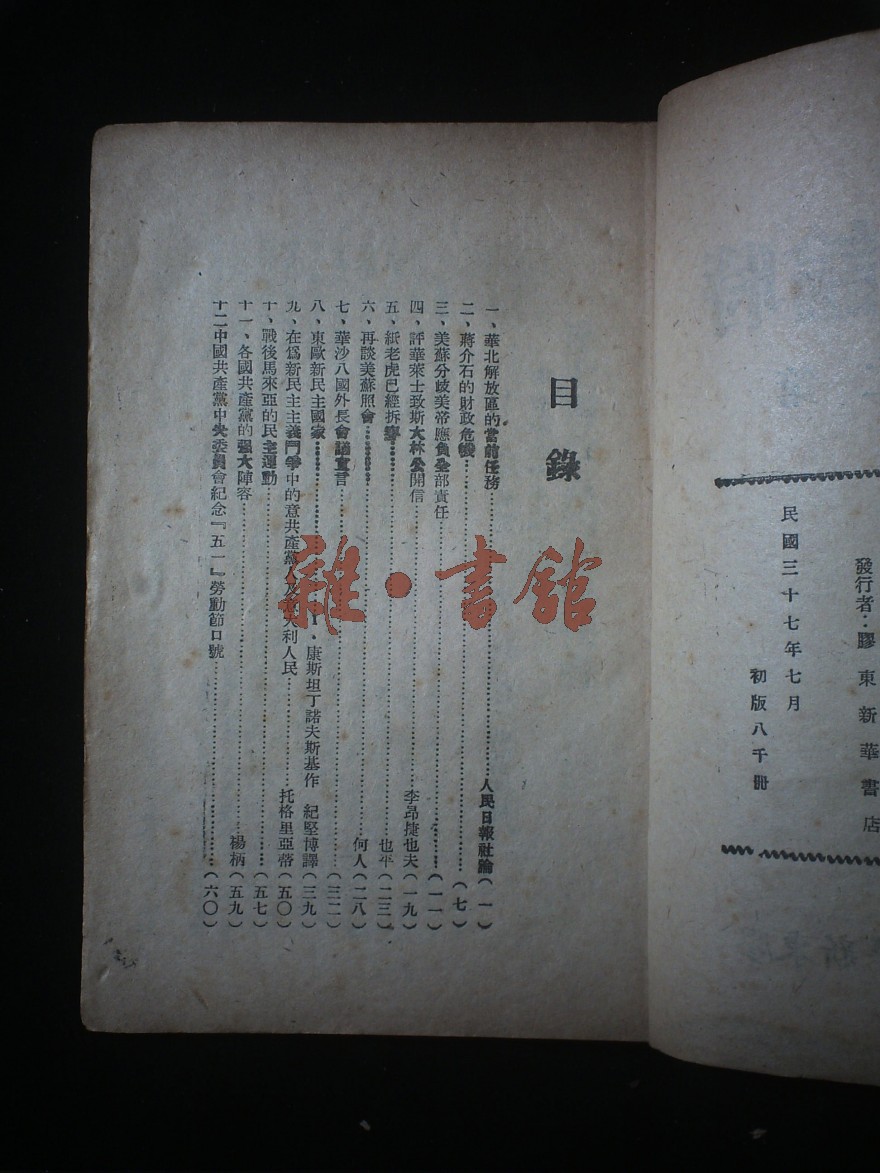 發行者：膠東新華書店
民國三十七年七月
初版八千冊
目錄
一、華北解放區的當前任務……人民日報社論（一）
二、蔣介石的財政危機……（七）
三、美蘇分歧美帝應負全部責任……（一一）
四、評華萊士致斯大林公開信……李昂捷也夫（一九）
五、紙老虎已經拆穿……也平（二三）
六、再談美蘇照會……何人（二八）
七、華沙八國外長會議宣言……（三二）
八、東歐新民主國家……I·康斯坦丁諾夫斯基作 紀堅博譯（三九）
九、在爲新民主主義鬥爭中的意共產黨人及意大利人民……托格里亞蒂（五〇）
十、戰後馬來亞的民主運動……（五七）
十一、各國共產黨的强大陣容……楊柄（五九）
十二中國共產黨中央委員會紀念『五一』勞動節口號……（六〇）
雜·書館